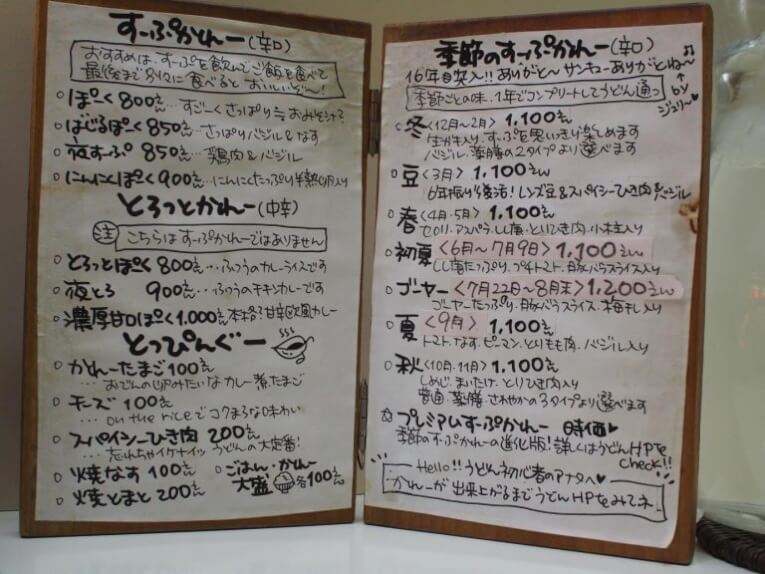 すーぷかれー(辛口)
おすすめは、すーぷを飲んでご飯を食べて
最後まで別々に食べるとおいしいぞ〜!
ぽーく 800えん…すごーくさっぱり≒おみそ汁?
ばじるぽーく 850えん…さっぱりバジル&なす
夜すーぷ 850えん…鶏肉&バジル
にんにくぽーく 900えん…にんにくたっぷり半熟卵入り
とろっとかれー(中辛)
注 こちらはすーぷかれーではありません
とろっとぽーく 800えん…ふつうのカレーライスです
夜とろ 900えん…ふつうのチキンカレーです
濃厚甘口ぽーく 1,000えん 本格?甘辛欧風カレー
とっぴんぐー
かれーたまご 100えん
…おでんの卵みたいなカレー煮たまご
チーズ 100えん
…on the riceでコクまろな味わい
スパイシーひき肉 200えん
…忘れちゃイケナイッうどんの大定番!
焼なす 100えん
焼とまと 200えん
ごはん・かれー
大盛 各100えん
季節のすーぷかれー(辛口)
16年目突入!!ありがと〜サンキューありがとね〜♫
↑byジュリー♥
季節ごとの味、1年でコンプリートしてうどん通っ
冬<12月〜2月> 1,100えん
生がき入り、すーぷを思いきり楽しめます
バジル・薬膳の2タイプより選べます
豆<3月> 1,100えん
6年振り復活!レンズ豆&スパイシーひき肉&バジル
春<4月・5月> 1,100えん
セロリ・アスパラ・しし唐・とりひき肉・小柱入り
初夏<6月〜7月9日> 1,100えん
しし唐たっぷり・プチトマト・豚バラスライス入り
ゴーヤー<7月22日〜8月末> 1,200えん
ゴーヤーたっぷり・豚バラスライス・梅干し入り
夏<9月> 1,100えん
トマト・なす・ピーマン・とりもも肉・バジル入り
秋<10月・11月> 1,100えん
しめじ・まいたけ・とりひき肉入り
普通・薬膳・さわやかの3タイプより選べます
☆プレミアムすーぷかれー 時価♥
季節のすーぷかれーの進化版!詳しくはうどんHPをcheck!!
Hello!!うどん初心者のアナタへ♥
かれーが出来上がるまでうどんHPをみてネ